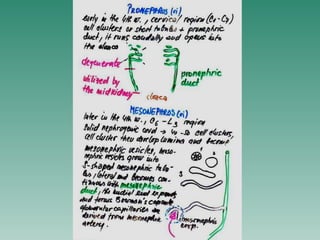 PRONEPHROS (vi)
early in the 4th w., cervical region (C1-C3)
cell clusters or short tubules + pronephric
duct, it runs caudally and opens into
the cloaca
degenerate
utilized by
the midkidney
pronephric
duct
cloaca
MESONEPHROS (vi)
later in the 4th w., C6 - L3 region
solid nephrogenic cord → 40 cell clusters,
cell clusters then develop lumina and become
mesonephric vesicles, meso-
nephric vesicles grow into
S-shaped mesonephric tubu-
les, lateral end becomes con-
tinuous with mesonephric
duct, the medial end expands
and forms Bowman's capsule
glomerular capillaries are
derived from mesonephric
artery.
mesonephric
corp.